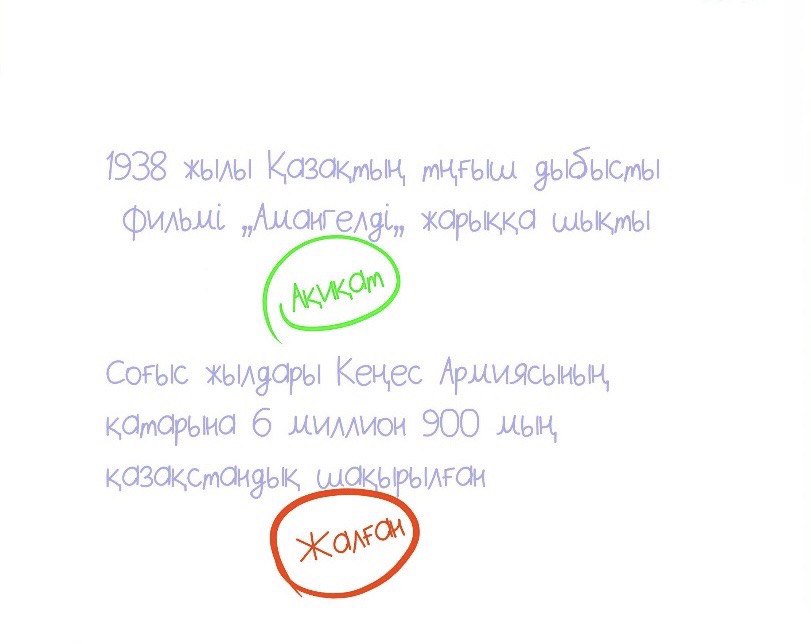 1938 жылы Қазақтың тңғыш дыбысты
фильмі „Амангелді„ жарыққа шықты
Ақиқат
Соғыс жылдары Кеңес Армиясының
қатарына 6 миллион 900 мың
қазақстандық шақырылған
Жалған